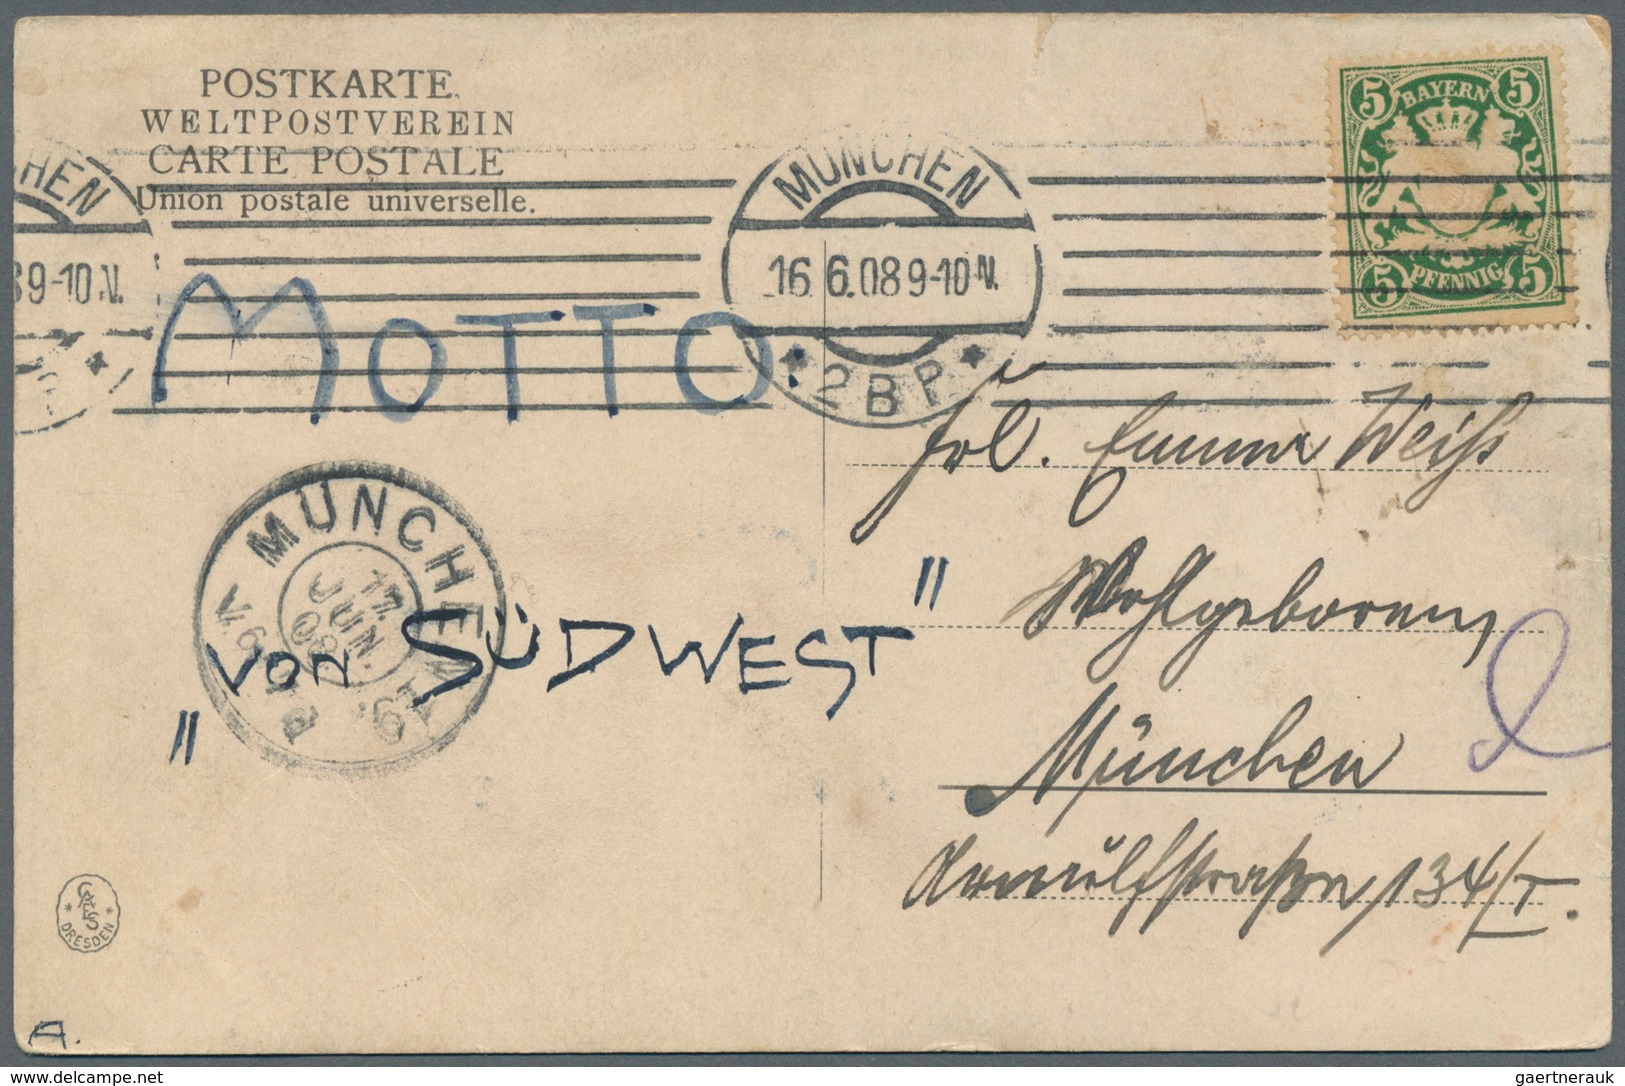 POSTKARTE.
WELTPOSTVEREIN
CARTE POSTALE
Union postale universelle.
BAYERN
5 5
5 5
PFENNIG
HEN
89-10 V.
MÜNCHEN
16.6.08 9-10 V.
* 2 B P *
MOTTO:
Frl. Emma Weiß
MÜNCHEN
17.
JUN.
08
V. 6
"VON SÜDWEST"
Wohlgeboren
München
Arnulfstraße 134/I.
DRESDEN
A.
www.delcampe.net
gaertnerauk